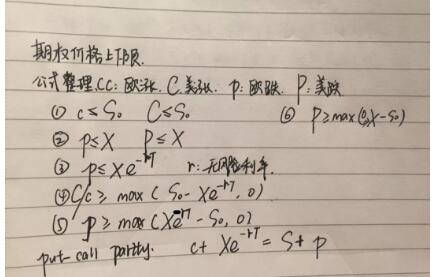 期权价格上下限.
公式整理. c: 欧涨. C. 美涨. p: 欧跌. P: 美跌
① c ≤ S₀ C ≤ S₀ ⑥ P ≥ max(0, X-S₀)
② p ≤ X P ≤ X
③ p ≤ Xe^{-rT} r: 无风险利率.
④ C/c ≥ max(S₀ - Xe^{-rT}, 0)
⑤ p ≥ max(Xe^{-rT} - S₀, 0)
put-call parity. c + Xe^{-rT} = S + p